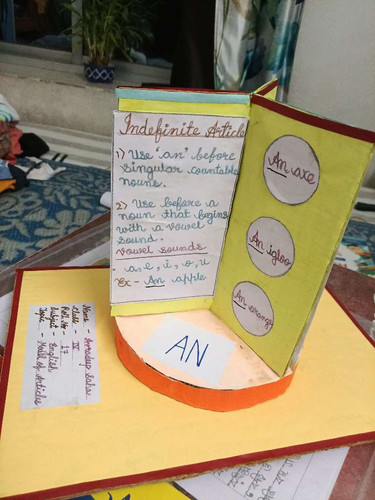 Indefinite Article
1) Use 'an' before
singular countable
nouns.
2) Use before a
noun that begins
with a vowel
sound.
vowel sounds
a, e, i, o, u
Ex - An apple
An axe
An igloo
An orange
AN
Name - Arradeep Saha
Class - IV
Roll No - 17
Subject - English
Topic - Mell of Articles